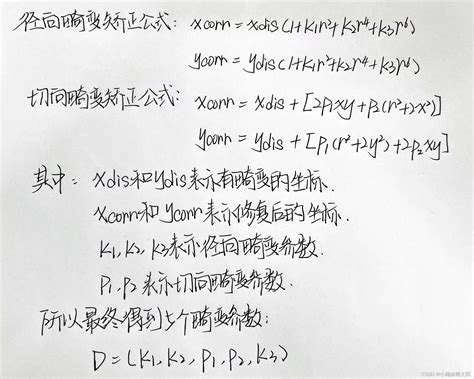 径向畸变矫正公式: xcorr = xdis(1+k₁r²+k₂r⁴+k₃r⁶)
ycorr = ydis(1+k₁r²+k₂r⁴+k₃r⁶)
切向畸变矫正公式: xcorr = xdis + [2p₁xy+p₂(r²+2x²)]
ycorr = ydis + [p₁(r²+2y²)+2p₂xy]
其中: xdis和ydis表示有畸变的坐标.
xcorr和ycorr表示修复后的坐标.
k₁,k₂,k₃表示径向畸变参数.
p₁,p₂表示切向畸变参数.
所以最终得到5个畸变参数:
D=(k₁,k₂,p₁,p₂,k₃)